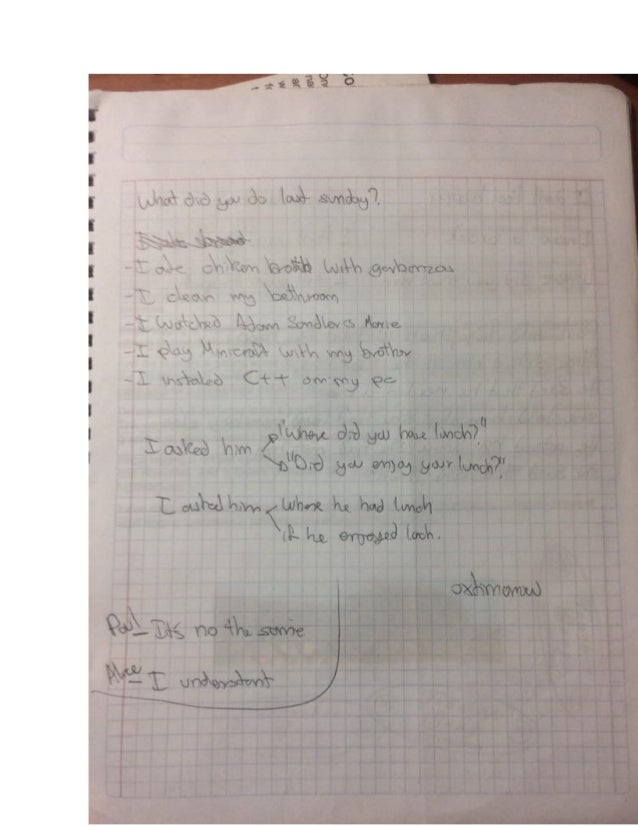 What did you do last sunday?
- I ate chiken broth with garbanzas
- I clean my bethroom
- I watched Adam Sandlers Movie
- I play Minicraft with my brother
- I instaled C++ on my pc
I asked him "Where did you have lunch?"
"Did you enjoy your lunch?"
I asked him where he had lunch
if he enjoyed lach.
Its no the same
I understant